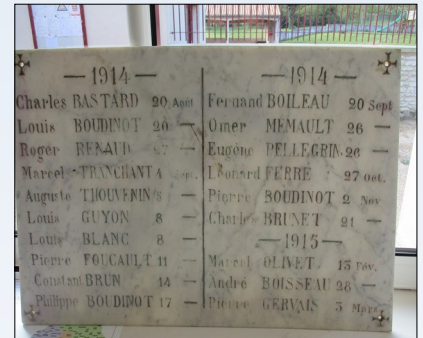 — 1914 —
Charles BASTARD 20 Août
Louis BOUDINOT 20 —
Roger RENAUD 27 —
Marcel TRANCHANT 4 Sept.
Auguste THOUVENIN 8 —
Louis GUYON 8 —
Louis BLANC 8 —
Pierre FOUCAULT 11 —
Constant BRUN 14 —
Philippe BOUDINOT 17 —
— 1914 —
Fernand BOILEAU 20 Sept
Omer MEMAULT 26 —
Eugène PELLEGRIN 26 —
Léonard FERRÉ 27 Oct.
Pierre BOUDINOT 2 Nov
Charles BRUNET 21 —
— 1915 —
Marcel OLIVET 13 Fév.
André BOISSEAU 28 —
Pierre GERVAIS 3 Mars